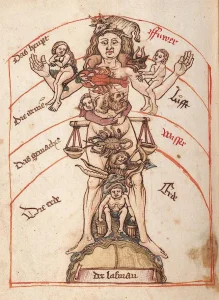 Das haupt
ffewer
Die arme
Lufft
Das gemächt
Wasser
Die erde
Erde
der lasman